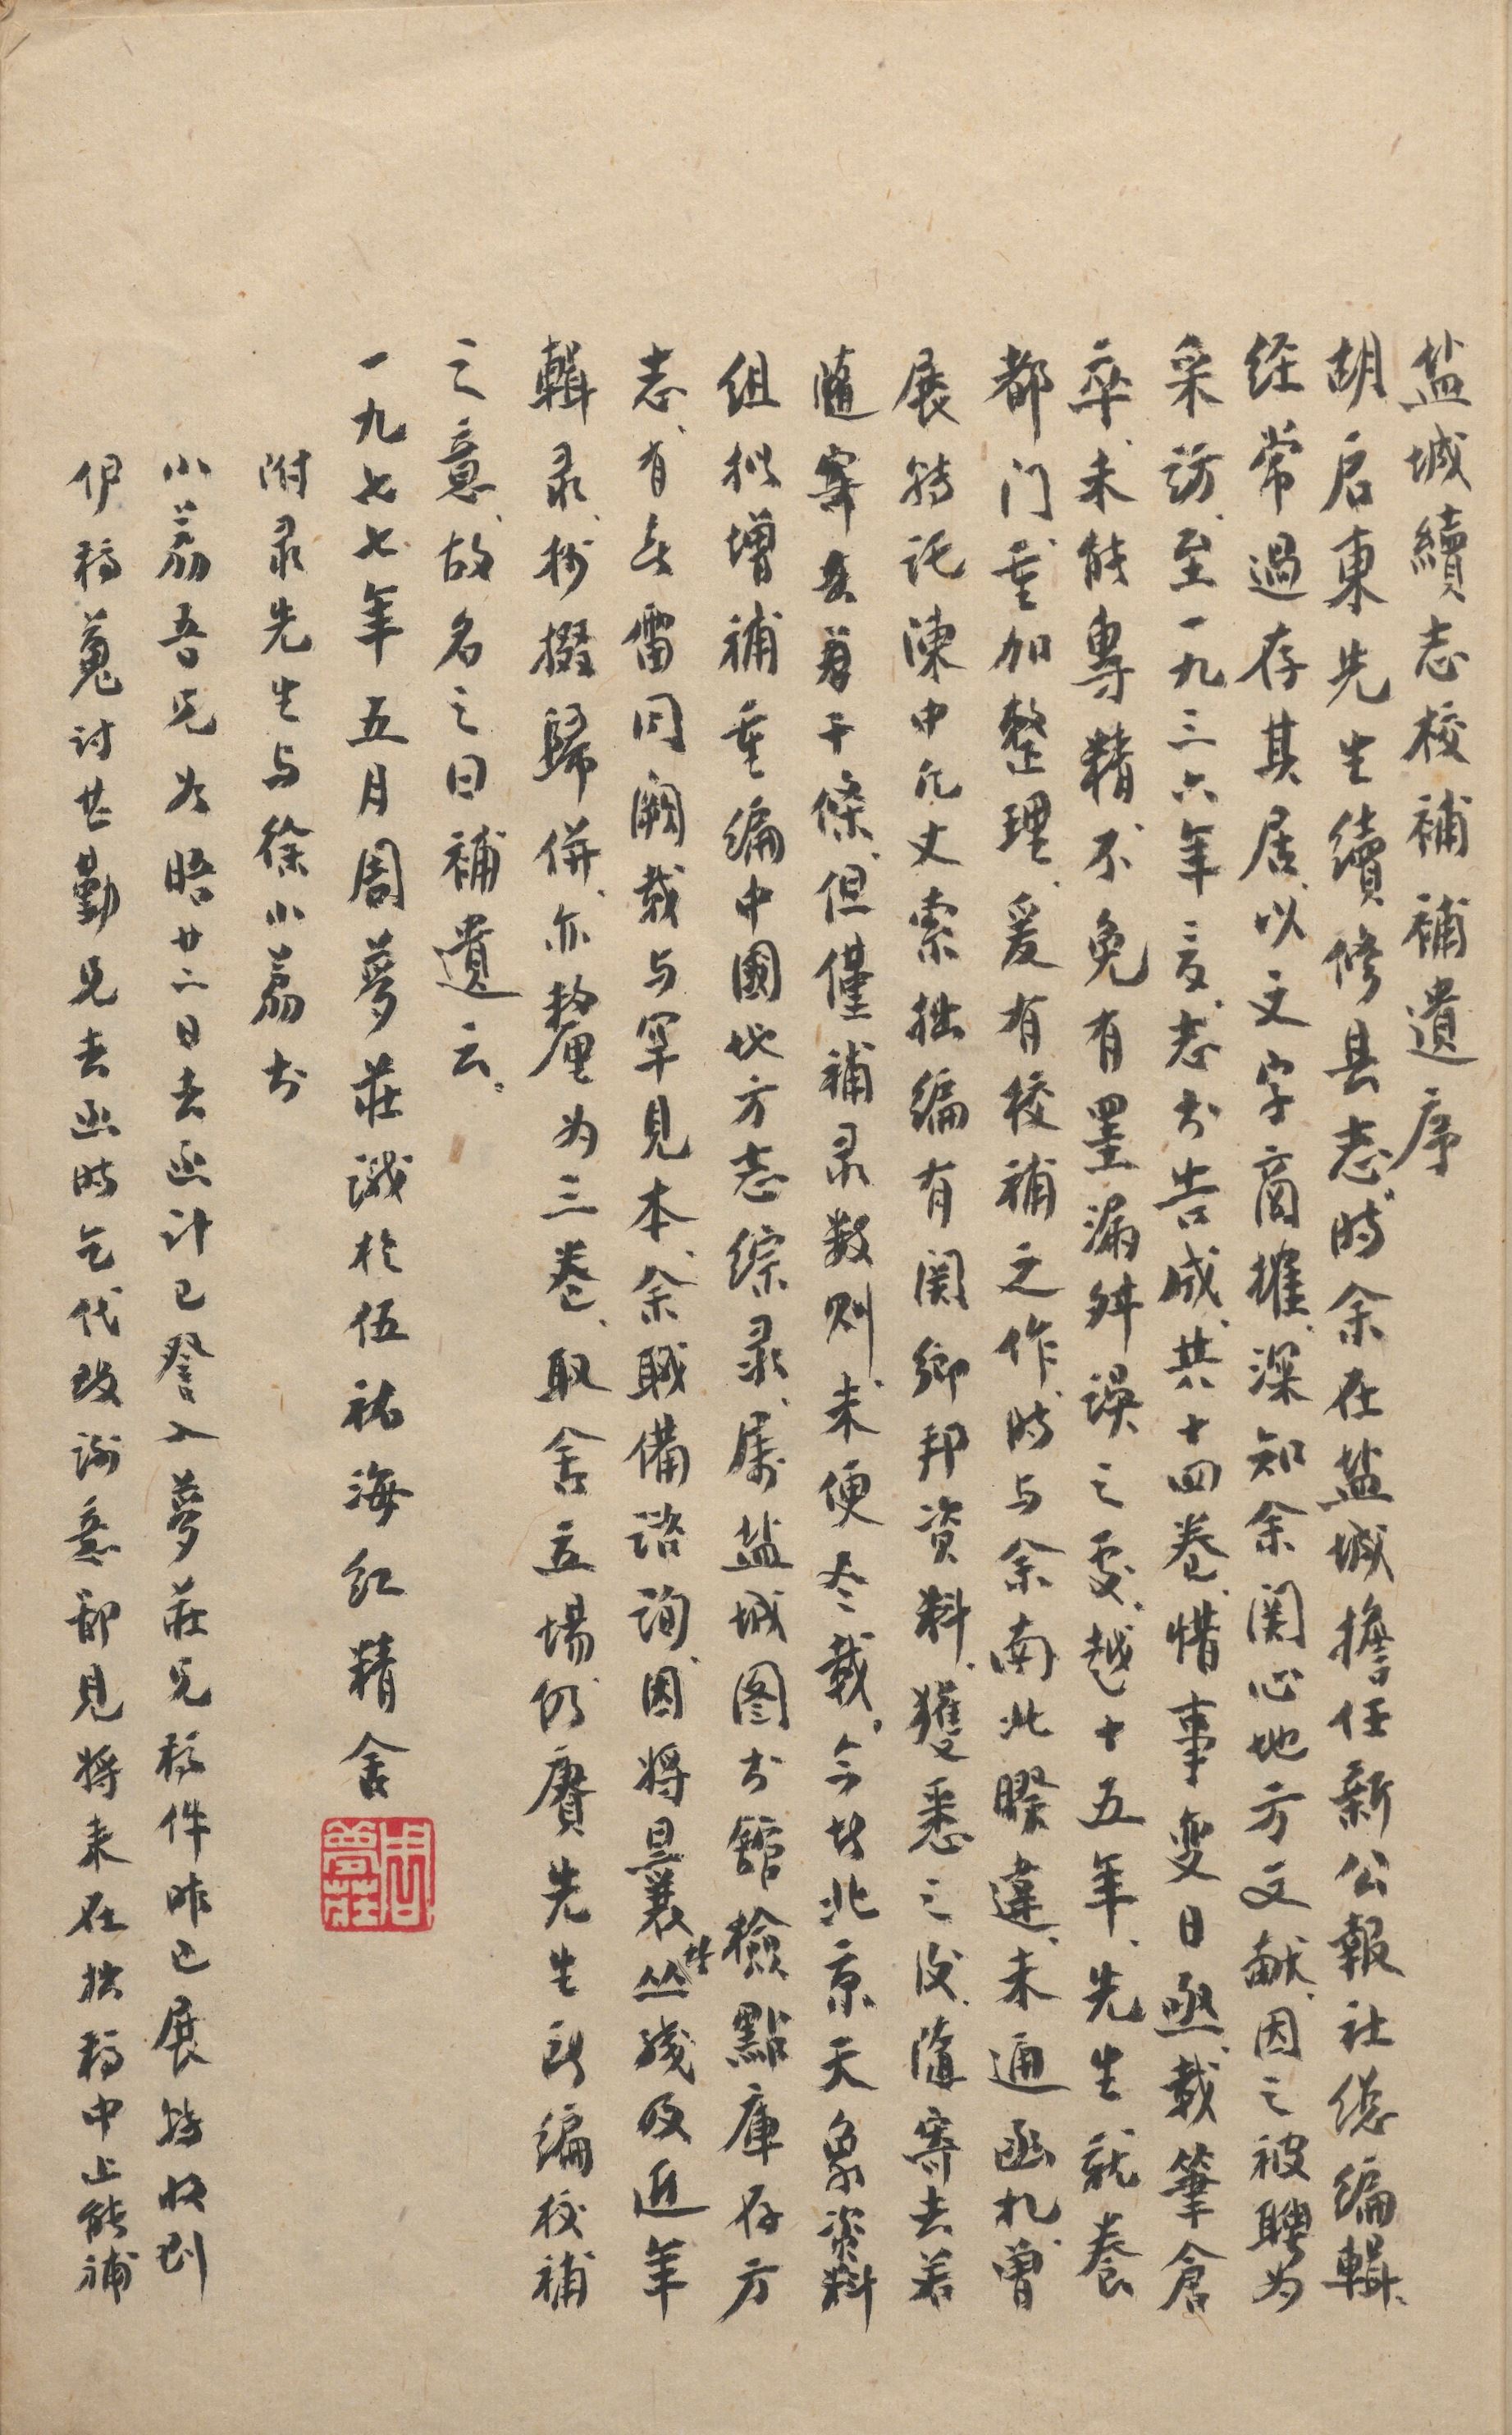 盐城續志校補補遺序
胡启東先生續修县志时余在盐城擔任新公報社總编輯、
经常過存其居、以文字商搉、深知余関心地方文献、因之被聘为
采訪、至一九三六年夏、志书告成、共十四卷、惜事变日亟、载筆倉
卒、未能專精不免有罣漏舛誤之处、越十五年、先生就養
都门、重加整理、爰有校補之作、时与余南北暌違、未通函札、曾
展转託陳中凡丈索拙编有関鄉邦资料、獲悉之後、随寄去若
隨寄去若干條、但僅補录数则、未便尽载。今者北京天象资料
组拟增補重编中國地方志综录、属盐城图书馆檢點庫存方
志、有无雷同阙载与罕见本、余职備諮询、因将曩昔丛残及近年
輯录、抄掇歸併、亦釐为三卷、取舍立場仍賡先生所编校補
之意、故名之曰補遺云。
一九七七年五月周夢莊識於伍祐海红精舍
周夢莊
附录先生与徐小荔书
小荔吾兄为晤廿二日去函计已詧入夢莊兄稿件昨已展转收到
伊稿蒐讨甚勤兄去函时乞代致谢意鄙見将来在拙稿中止能補